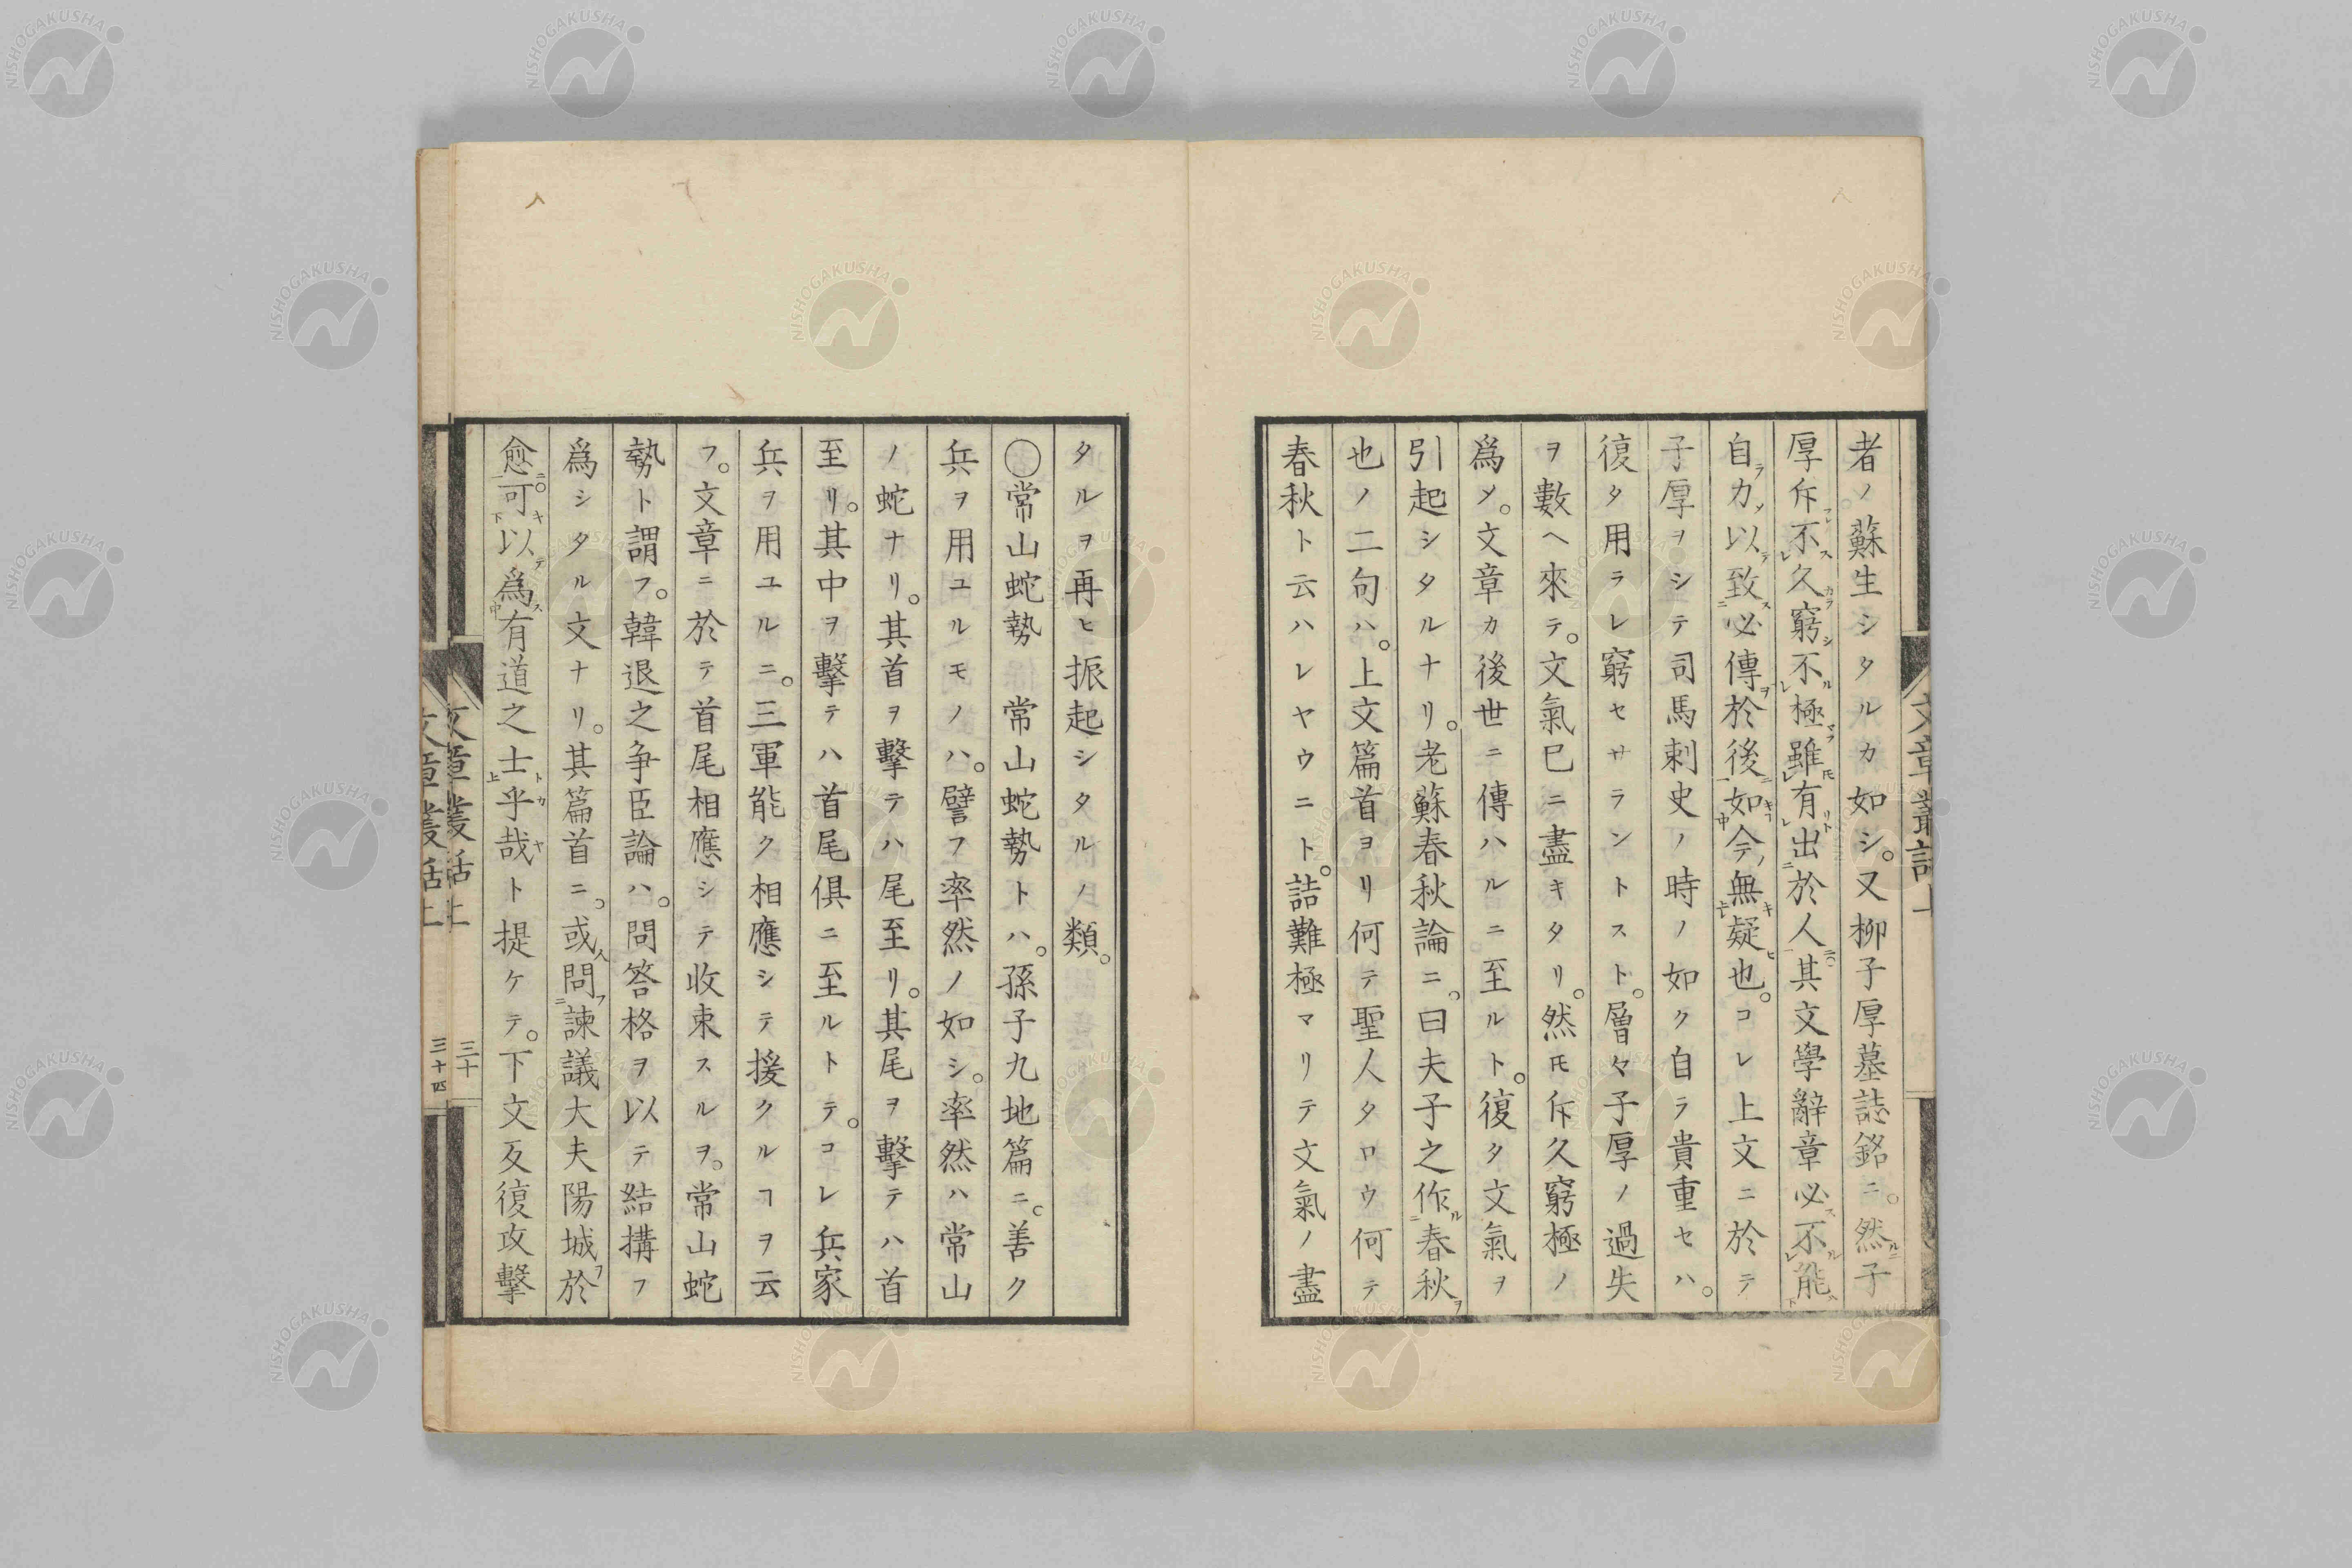 者ノ蘇生シタルカ如シ。又柳子厚墓誌銘ニ。然ルニ子
厚斥不久窮不極雖有出於人其文學辭章必不能
自力以致必傳於後如今無疑也。コレ上文ニ於テ
子厚ヲシテ司馬刺史ノ時ノ如ク自ラ貴重セハ。
復タ用ラレ窮セサラントスト。層々子厚ノ過失
ヲ數ヘ來テ。文氣已ニ盡キタリ。然𪜈斥久窮極ノ
爲メ。文章カ後世ニ傳ハルニ至ルト。復タ文氣ヲ
引起シタルナリ。老蘇春秋論ニ。曰夫子之作春秋
也ノ二句ハ。上文篇首ヨリ何テ聖人タロウ何テ
春秋ト云ハレヤウニト。詰難極マリテ文氣ノ盡
文章叢話上
タルヲ再ヒ振起シタルノ類。
〇常山蛇勢 常山蛇勢トハ。孫子九地篇ニ。善ク
兵ヲ用ユルモノハ。譬フ率然ノ如シ。率然ハ常山
ノ蛇ナリ。其首ヲ擊テハ尾至リ。其尾ヲ擊テハ首
至リ。其中ヲ擊テハ首尾俱ニ至ルトテ。コレ兵家
兵ヲ用ユルニ。三軍能ク相應シテ援クルヿヲ云
フ。文章ニ於テ首尾相應シテ收束スルヲ。常山蛇
勢ト謂フ。韓退之争臣論ハ。問答格ヲ以テ結搆フ
爲シタル文ナリ。其篇首ニ。或問諫議大夫陽城於
愈可以爲有道之士乎哉ト提ケテ。下文反復攻擊
文章叢話上 三十
文章叢話上 三十四
NISHOGAKUSHA